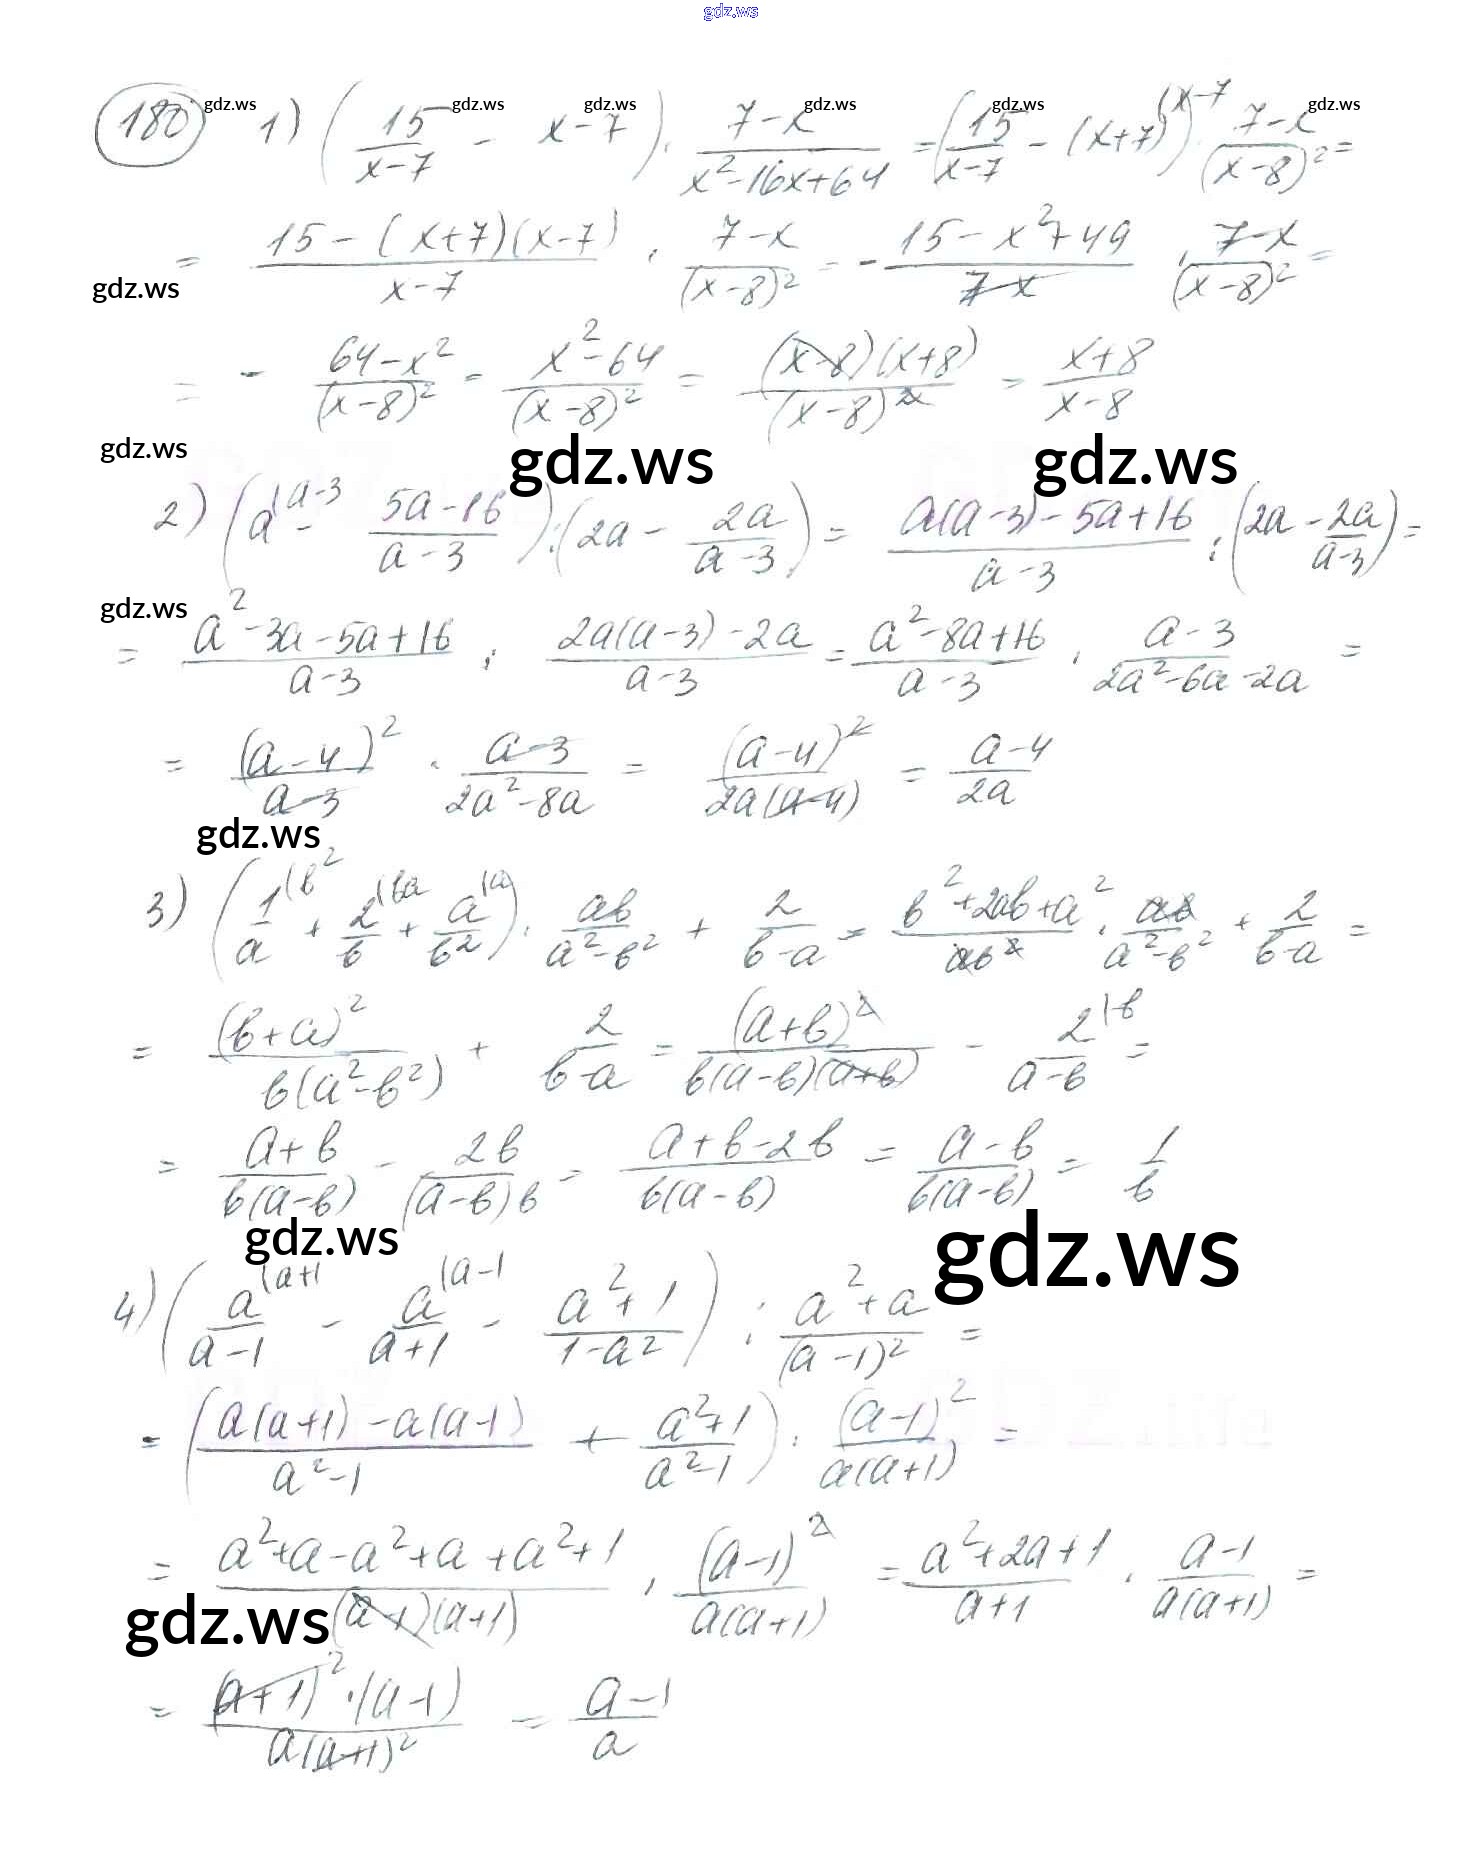 gdz.ws
180 gdz.ws 1) (15/(x-7) - x-7) · (7-x)/(x²-16x+64) = (15/(x-7) - (x+7)^{(x-7}) · (7-x)/(x-8)² = gdz.ws gdz.ws gdz.ws gdz.ws gdz.ws
= (15-(x+7)(x-7))/(x-7) · (7-x)/(x-8)² = - (15-x²+49)/(7-x) · (7-x)/(x-8)² =
gdz.ws
= - (64-x²)/(x-8)² = (x²-64)/(x-8)² = ((x-8)(x+8))/(x-8)² = (x+8)/(x-8)
gdz.ws gdz.ws gdz.ws
2) (a^{(a-3} - (5a-16)/(a-3)) : (2a - 2a/(a-3)) = (a(a-3)-5a+16)/(a-3) : (2a - 2a/(a-3)) =
gdz.ws
= (a²-3a-5a+16)/(a-3) : (2a(a-3)-2a)/(a-3) = (a²-8a+16)/(a-3) · (a-3)/(2a²-6a-2a) =
= (a-4)²/(a-3) · (a-3)/(2a²-8a) = (a-4)²/(2a(a-4)) = (a-4)/2a
gdz.ws
3) (1/a^{(b²} + 2/b^{(ba} + a/b²^{(a}) · ab/(a²-b²) + 2/(b-a) = (b²+2ab+a²)/(ab²) · ab/(a²-b²) + 2/(b-a) =
= (b+a)²/(b(a²-b²)) + 2/(b-a) = (a+b)²/(b(a-b)(a+b)) - 2/(a-b)^{(b} =
= (a+b)/(b(a-b)) - 2b/((a-b)b) = (a+b-2b)/(b(a-b)) = (a-b)/(b(a-b)) = 1/b
gdz.ws gdz.ws
4) (a/(a-1)^{(a+1} - a/(a+1)^{(a-1} - (a²+1)/(1-a²)) : (a²+a)/(a-1)² =
= ((a(a+1)-a(a-1))/(a²-1) + (a²+1)/(a²-1)) · (a-1)²/(a(a+1)) =
= (a²+a-a²+a+a²+1)/((a-1)(a+1)) · (a-1)²/(a(a+1)) = (a²+2a+1)/(a+1) · (a-1)/(a(a+1)) =
gdz.ws
= ((a+1)²·(a-1))/(a(a+1)²) = (a-1)/a